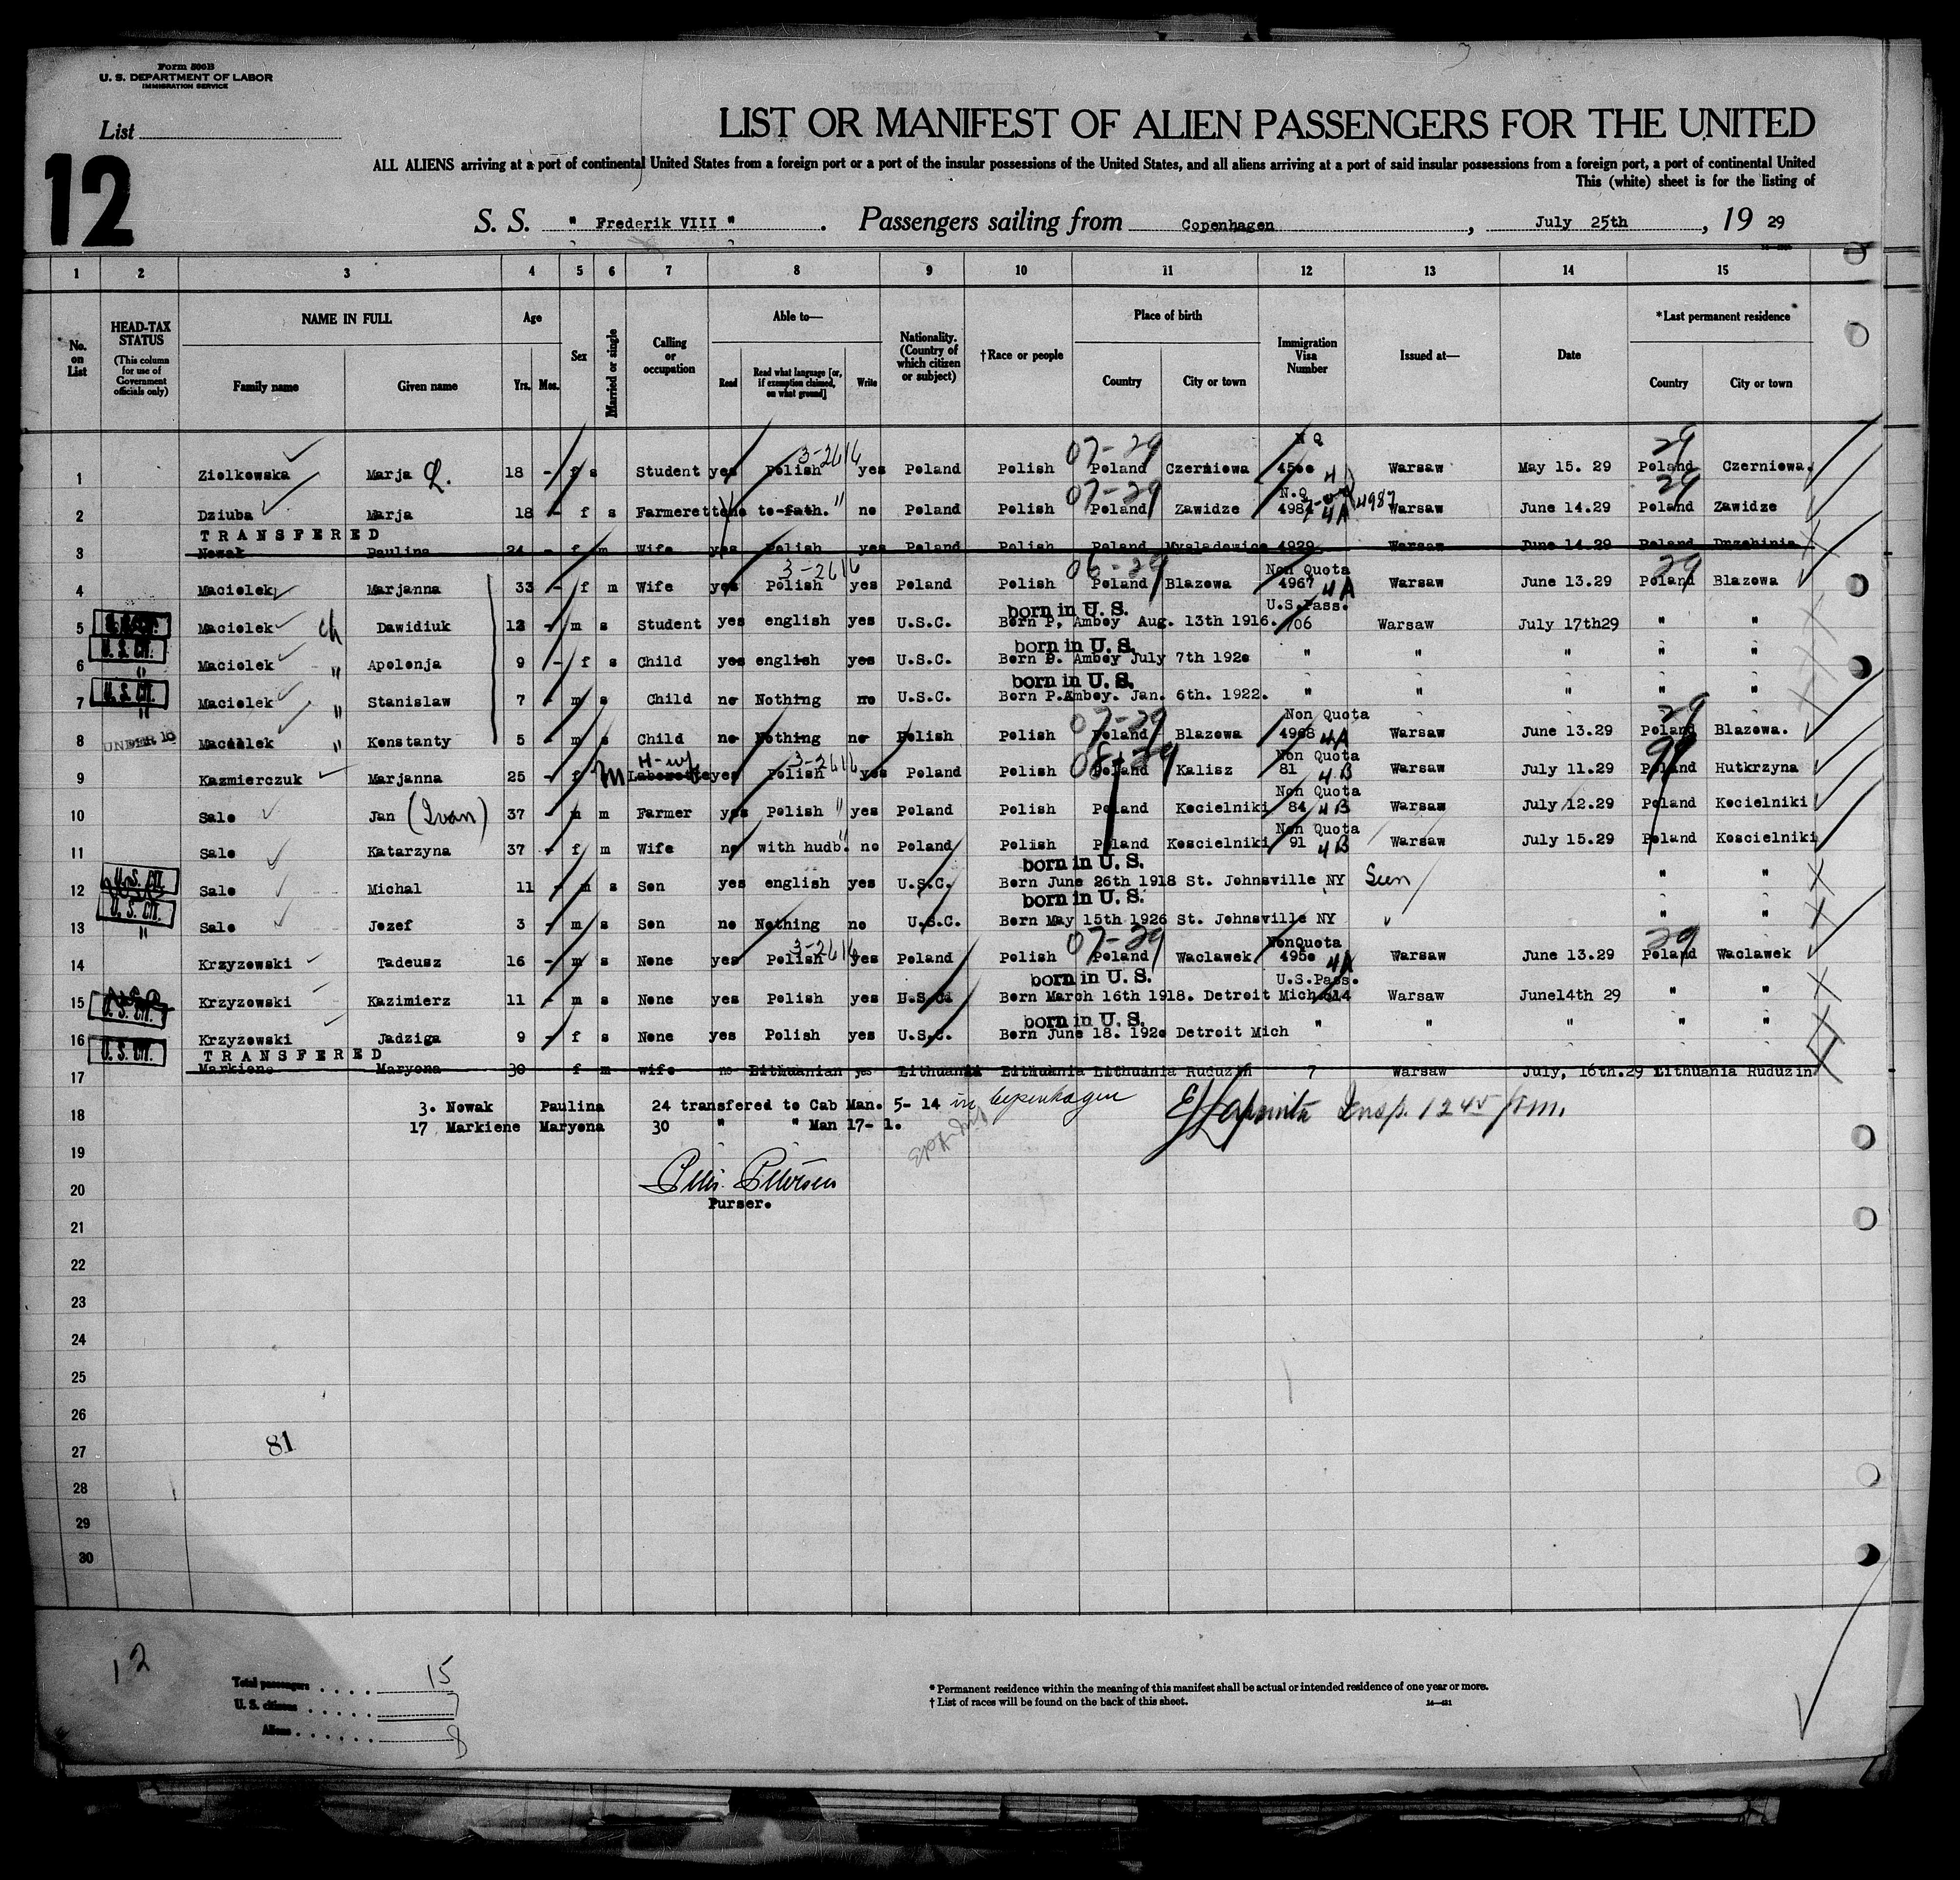 Form 500B
U. S. DEPARTMENT OF LABOR
IMMIGRATION SERVICE
List
12
LIST OR MANIFEST OF ALIEN PASSENGERS FOR THE UNITED
ALL ALIENS arriving at a port of continental United States from a foreign port or a port of the insular possessions of the United States, and all aliens arriving at a port of said insular possessions from a foreign port, a port of continental United
This (white) sheet is for the listing of
S. S. " Frederik VIII " . Passengers sailing from Copenhagen , July 25th , 19 29
1 2 3 4 5 6 7 8 9 10 11 12 13 14 15
No. on List
HEAD-TAX STATUS (This column for use of Government officials only)
NAME IN FULL
Family name Given name
Age
Yrs. Mos.
Sex
Married or single
Calling or occupation
Able to—
Read Read what language [or, if exemption claimed, on what ground] Write
Nationality. (Country of which citizen or subject)
†Race or people
Place of birth
Country City or town
Immigration Visa Number
Issued at—
Date
*Last permanent residence
Country City or town
07-29 N Q 29
3-2616
1 Ziolkowska Marja L. 18 - f s Student yes Polish yes Poland Polish Poland Czerniowa 4500 4 Warsaw May 15. 29 Poland Czerniowa.
07-29 N.Q 29
2 Dziuba Marja 18 - f s Farmerette no to fath. " no Poland Polish Poland Zawidze 4984 4A 4987 Warsaw June 14.29 Poland Zawidze
TRANSFERED
3 Nowak Paulina 24 - f m Wife yes Polish yes Poland Polish Poland 4929 Warsaw June 14.29 Poland
3-2616 06-29 Non Quota 29
4 Maciolek Marjanna 33 - f m Wife yes Polish yes Poland Polish Poland Blazowa 4967 4A Warsaw June 13.29 Poland Blazowa
born in U. S. U.S.Pass.
5 Maciolek ch Dawidiuk 12 - m s Student yes english yes U.S.C. Born P, Amboy Aug. 13th 1916. 706 Warsaw July 17th29 " "
U. S. CIT. born in U. S.
6 " Maciolek " Apolonja 9 - f s Child yes english yes U.S.C. Born P. Amboy July 7th 1920 " " " " "
U. S. CIT. born in U. S.
7 " Maciolek " Stanislaw 7 - m s Child no Nothing no U.S.C. Born P.Amboy. Jan. 6th. 1922. " " " " "
07-29 Non Quota 29
8 UNDER 16 Maciolek " Konstanty 5 - m s Child no Nothing no Polish Polish Poland Blazowa 4968 4A Warsaw June 13.29 Poland Blazowa.
H-wf 3-2616 08-29 Non Quota 29
9 Kazmierczuk Marjanna 25 - f m Laborette yes Polish yes Poland Polish Poland Kalisz 81 4B Warsaw July 11.29 Poland Hutkrzyna
Non Quota
10 Salo Jan (Ivan) 37 - m m Farmer yes Polish " yes Poland Polish Poland Kocielniki 84 4B Warsaw July 12.29 Poland Kocielniki
Non Quota
11 Salo Katarzyna 37 - f m Wife no with hudb. " no Poland Polish Poland Koscielniki 91 4B Warsaw July 15.29 Poland Koscielniki
U. S. CIT. born in U. S.
12 Salo Michal 11 - m s Son yes english yes U.S.C. Born June 26th 1918 St. Johnsville NY Seen " "
U. S. CIT. born in U. S.
13 " Salo Jozef 3 - m s Son no Nothing no U.S.C. Born May 15th 1926 St. Johnsville NY " " "
3-2616 07-29 NonQuota 29
14 Krzyzowski Tadeusz 16 - m s None yes Polish yes Poland Polish Poland Waclawek 4950 4A Warsaw June 13.29 Poland Waclawek
born in U. S. U.S.Pass.
15 U. S. CIT. Krzyzowski Kazimierz 11 - m s None yes Polish yes U.S.C. Born March 16th 1918. Detroit Mich 614 Warsaw June14th 29 " "
born in U. S.
16 U. S. CIT. Krzyzowski Jadziga 9 - f s None yes Polish yes U.S.C. Born June 18. 1920 Detroit Mich " " " " "
TRANSFERED
17 Markiene Maryona 30 f m wife no Lithuanian yes Lithuania Lithuania Lithuania Ruduzin 7 Warsaw July, 16th.29 Lithuania Ruduzin
18 3. Nowak Paulina 24 transfered to Cab Man. 5- 14 in Copenhagen
Insp. 1245 pm.
17 Markiene Maryona 30 " " Man 17- 1.
19
20
Purser.
21
22
23
24
25
26
27
81
28
29
30
12
Total passengers 15
U. S. citizens 7
Aliens 8
* Permanent residence within the meaning of this manifest shall be actual or intended residence of one year or more.
† List of races will be found on the back of this sheet.